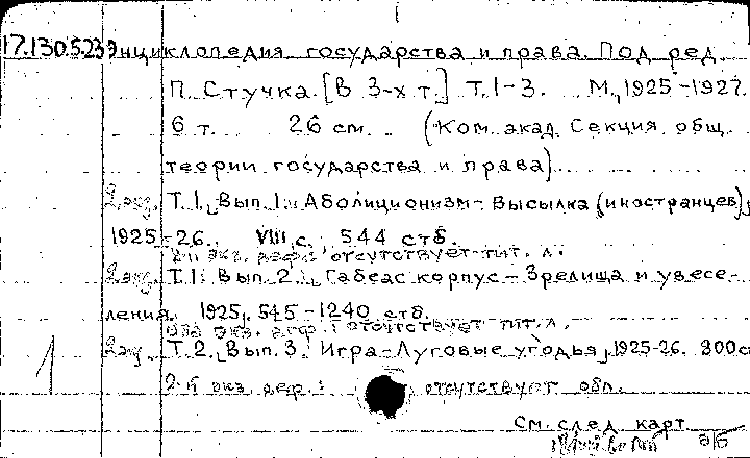 17.130.523 Энциклопедия государства и права. Под ред.
П. Стучка. [В 3-х т.] Т. 1-3. М., 1925-1927.
6 т. 26 см. (Ком. акад. Секция общ.
теории государства и права)
2 экз. Т. 1, Вып. 1. Аболиционизм - Высылка (иностранцев),
1925-26. VIII с. 544 стб.
2-й экз. деф.: отсутствует тит. л.
2 экз. Т. 1. Вып. 2. Габеас корпус - Зрелища и увесе-
ления. 1925, 545-1240 стб.
оба экз. деф.: отсутствует тит. л.
2 экз. Т. 2, Вып. 3. Игра - Луговые угодья, 1925-26. 800 с
1 2-й экз. деф.: отсутствует обл.
См. след. карт.